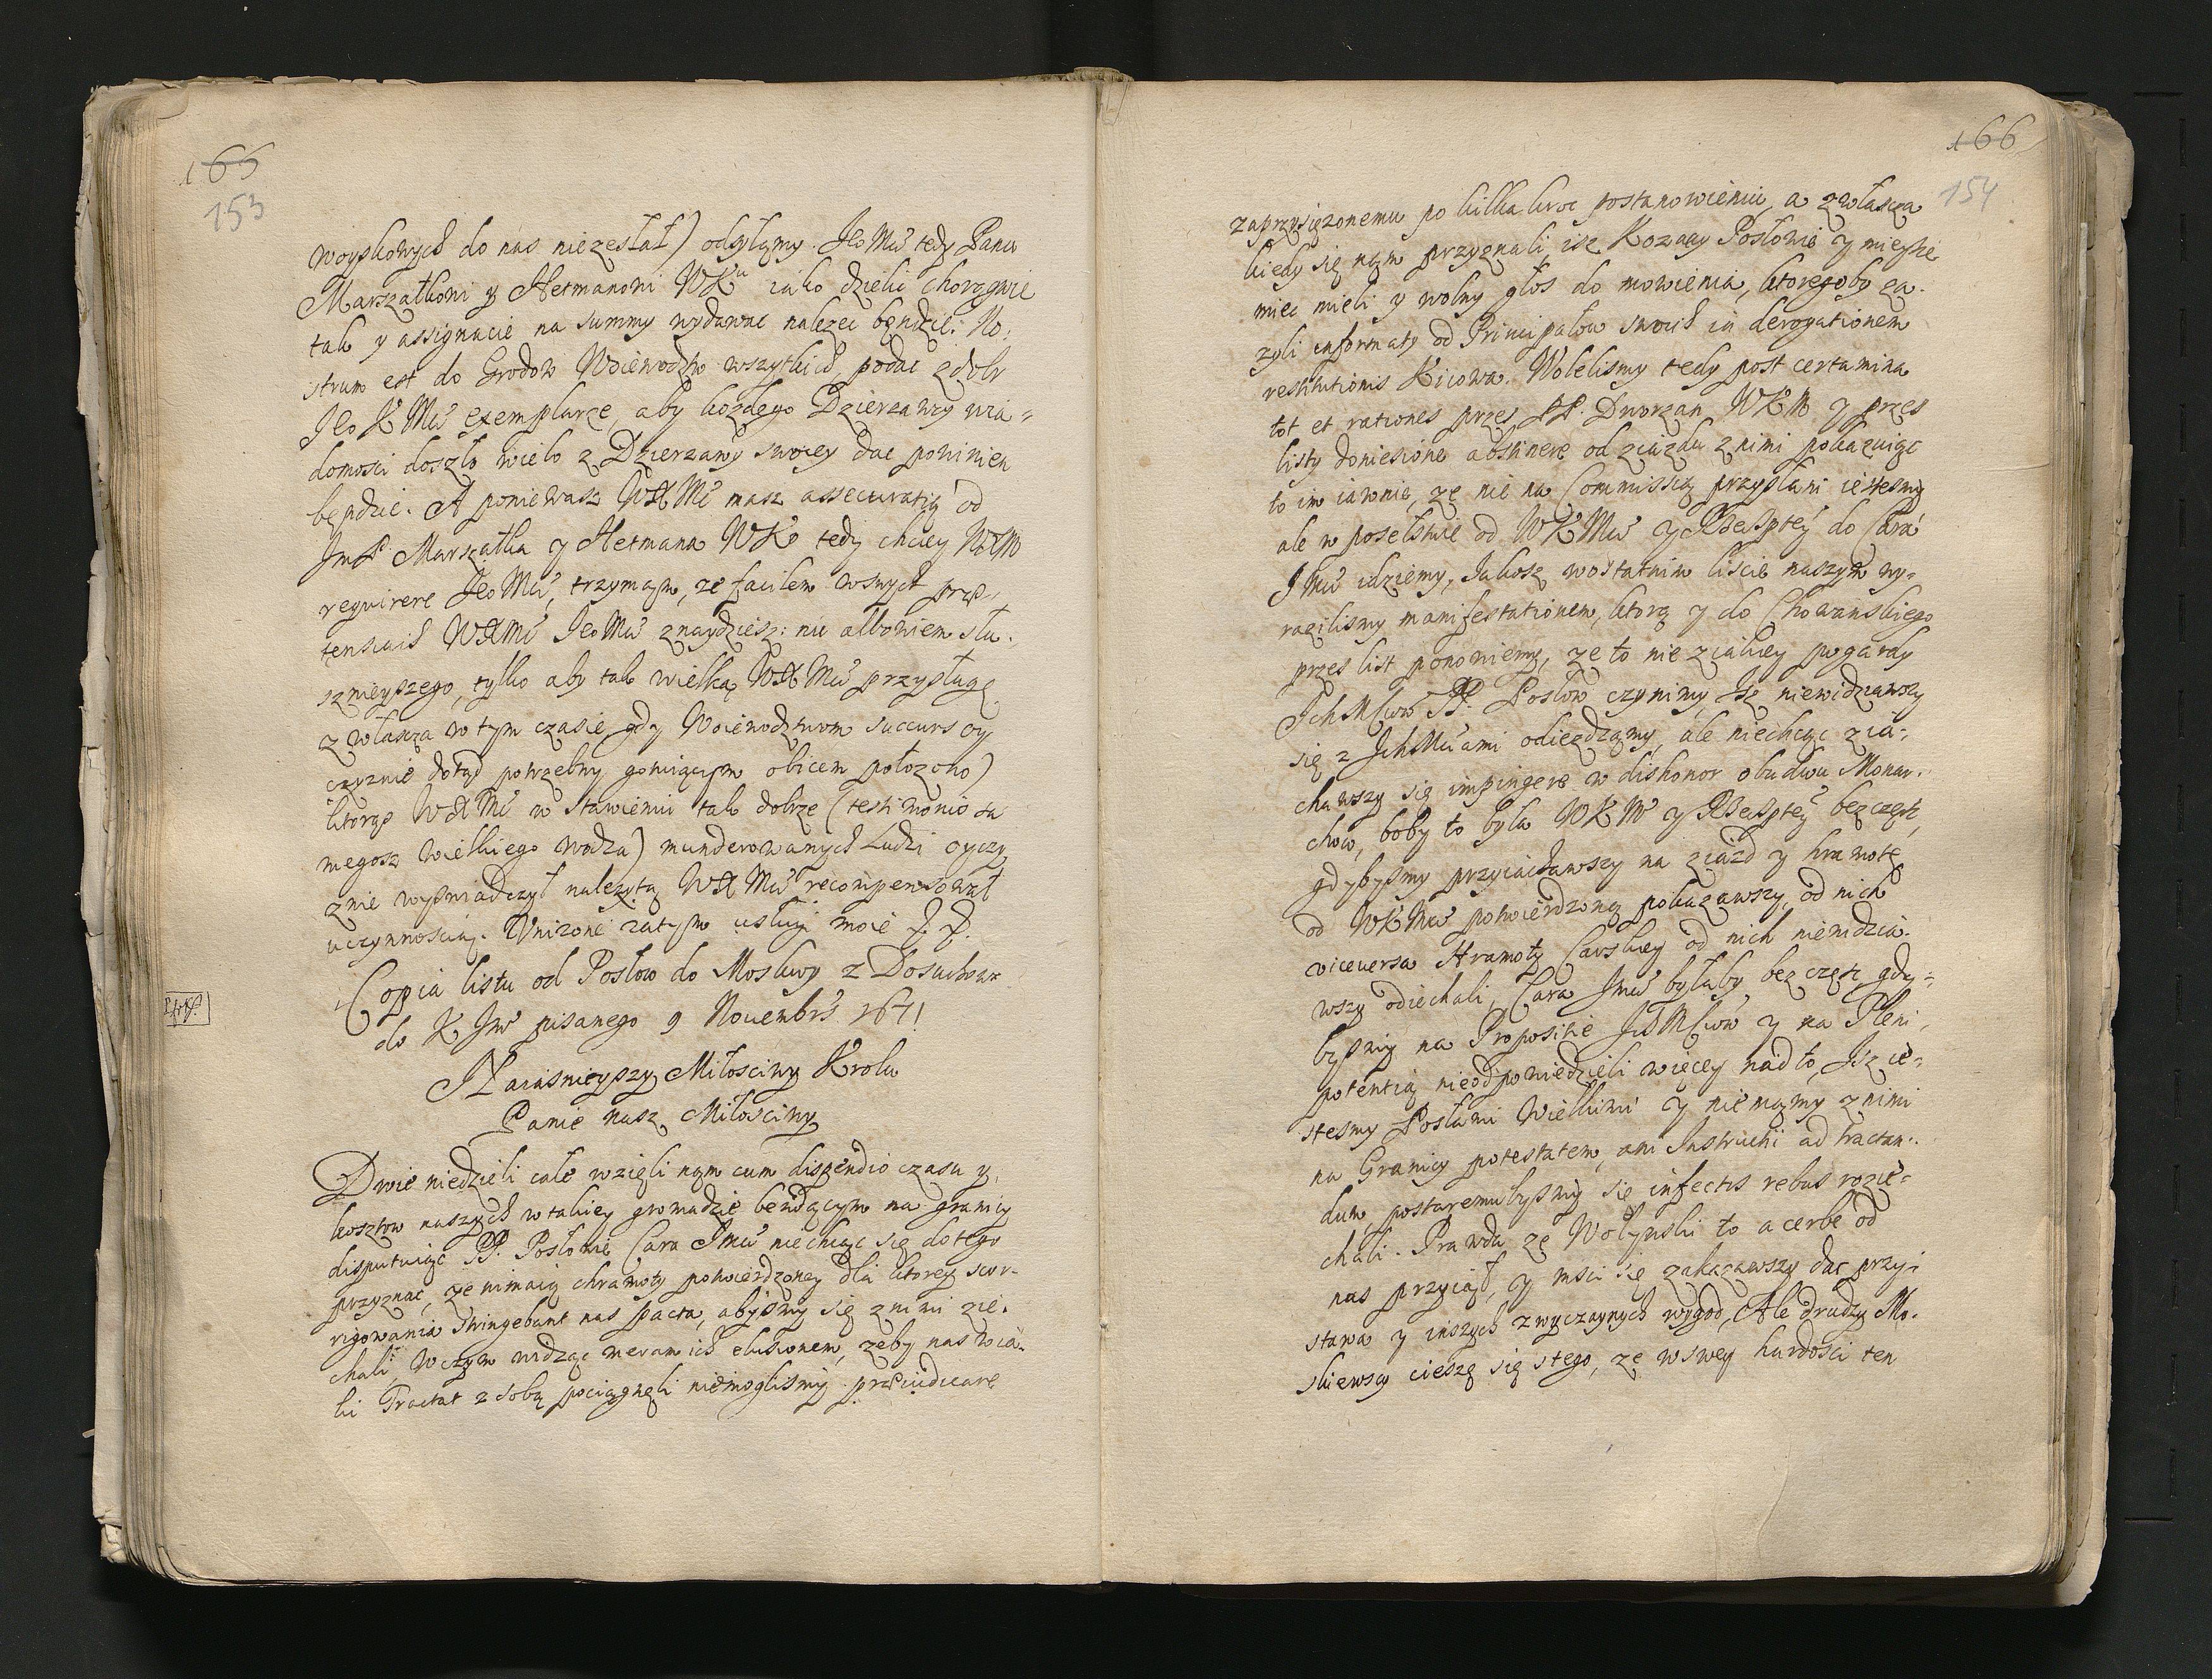 165
153
woyskowych do nas niezesłał) odsyłamy. Jeo Mći tedy Panu
Marszałkowi y Hetmanowi WKu iako dzielic chorągwie
tak y assignacie na summy wydawac nalezec będzie: No,
strum est do Grodow Woiewodztw wszytkich, podac z dobr
Jeo K Mći exemplarze, aby kozdego Dzierzawcy wia-
domosci doszło wielo z Dzierzawy swoiey dac powinien
będzie. A poniewasz WMMć masz assecuratią od
JmP Marszałka y Hetmana WKo tedy chciey WMM
requirere Jeo Mći, trzymam, ze facilem wswych prae-
tensiach WMMć Jeo Mći znaydziesz: nic albowiem słu-
sznieyszego, tylko aby tak wielką WMMći przysługę
zwłascza w tym czasie, gdy Woiewodztwom succurs oy
czyznie dotąd potrzebny gotuiącym obicem połozono)
ktorąs WMMć w stawieniu tak dobrze (testimonio sa
megosz Wielkiego Wodza) munderowanych Ludzi oyczy
znie wyswiadczył nalezytą WMMći recompensował
uczynnoscią. Unizone zatym usługi moie J. J.
Copia listu od Posłow do Moskwy z Dosuchowa
do K Jm pisanego 9 Novembrs 1671
NZaiasnieyszy Miłosciwy Krolu
Panie nasz Miłosciwy
Dwie niedzieli całe wzięli nąm cum dispendio czasu y,
kosztow naszych w takiey gromadzie będącym na granicy
disputuiąc PP. Posłowie Cara Jmći niechcąc się do tego
przyznac, ze nimaią chramoty potwierdzoney dla ktorey scor-
rigowania stringebant nas pacta, abysmy się z nimi zie-
chali, Wczym widząc meram ich elusionem, zeby nas w ia-
ki Tractat z sobą pociągnęli niemoglismy praeiudicare
166
154
zaprzysięzonemu po kilka kroc postanowieniu, a zwłascza
kiedy się nąm przyznali, isz Kozaccy Posłowie y mieysce
miec mieli y wolny głos do mowienia, ktoregoby za-
zyli informaty od Principałow swoich in derogationem
restitutionis Kiiowa. Wolelismy tedy post certamina
tot et rationes przes PP. Dworzan WKM y przes
listy doniesione abstinere od ziazdu z nimi pokazuiąc
to im iawnie, ze nie na Commissią przysłani iestesmy
ale w poselstwie od WKMći y RzeczPptey do Cara
Jmći idziemy, Jakosz w ostatnim liście naszym wy-
razilismy manifestationem, ktorą y do Chowanskiego
przes list ponowiemy, ze to nie z iakiey pogardy
Jch Mćiow PP. Posłow czynimy, Jsz niewidziawszy
się z JchMćiami odiezdzamy, ale niechcąc zia-
chawszy się impingere w dishonor obudwu Monar-
chow, boby to była WKM y RzeczPptey bezczesc,
gdybysmy przyiachawszy na ziazd y hramotę
od WKMći potwierdzoną pokazawszy, od nich
viceversa Hramoty Carskiey od nich niewidzia-
wszy odiechali, Cara Jmći byłaby bez czesc, gdy-
bysmy na Propositie JchMćiow y na Pleni-
potentią nieodpowiedzieli więcey nad to, Jsz ie-
stesmy Posłami Wielkimi y niemąmy z nimi
na Granicy potestatem, ani Instructii ad tractan-
dum, postaremubysmy się infectis rebus rozie-
chali. Prawda ze Wołynski to acerbe od
nas przyiął, y msci się zakazawszy dac przy-
stawa y inszych zwyczaynych wygod, Ale drudzy Mo-
skiewscy cieszą się stego, ze w swey hardosci ten